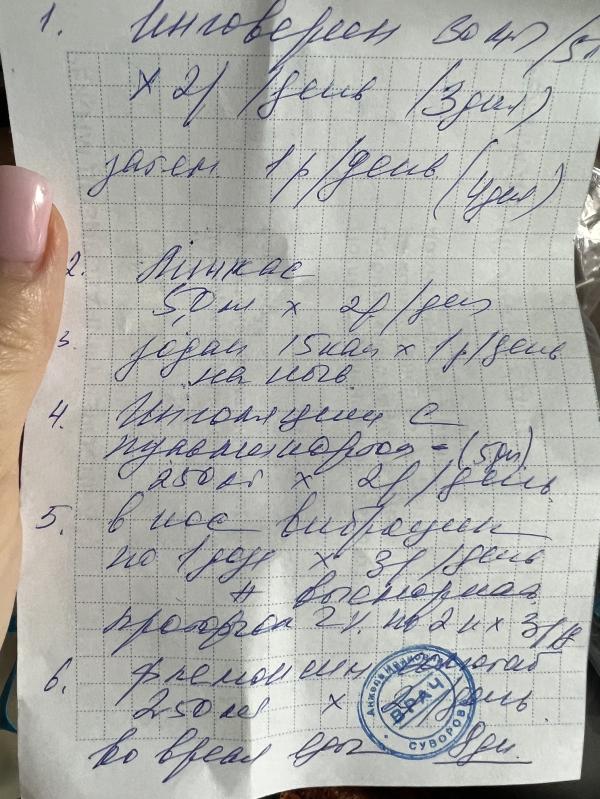 1. Ингаверин 30 мг/
x 2р/день (3 дня)
затем 1р/день (4дня)
2. Линкас
5,0 мл x 2р/дн
3. зодак 15 кап x 1р/день
на ночь
4. Ингаляции с
пульмикортом - (5дн)
250 мг x 2р/день
5. в нос виброцил
по 1 дозе x 3р/день
+
протаргол 2% по 2 к x 3р/д
6. флемоксин солютаб
250 мг x 2р/день
во время еды 8дн.
ВРАЧ
СУВОРОВ